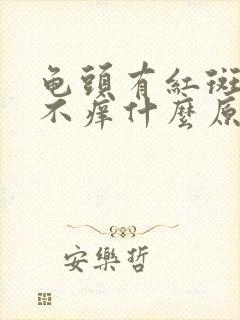 龟頭有紅斑
不痒什麽原
安樂哲